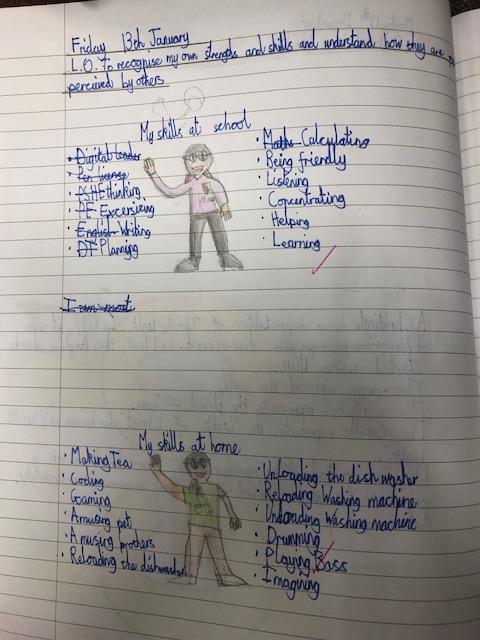 Friday 13th January
L.O. To recognise my own strengths and skills and understand how they are
perceived by others
My skills at school
• Digital leader
• Pen license
• PSHE thinking
• PE Excersising
• English Writing
• DT Planning
• Maths Calculating
• Being friendly
• Listening
• Concentrating
• Helping
• Learning
I am most
My skills at home
• Making Tea
• Coding
• Gaming
• Amusing pet
• Amusing brothers
• Reloading the dishwasher
• Unloading the dish washer
• Reloading Washing machine
• Unloading Washing machine
• Drumming
• Playing Bass
• Imagining